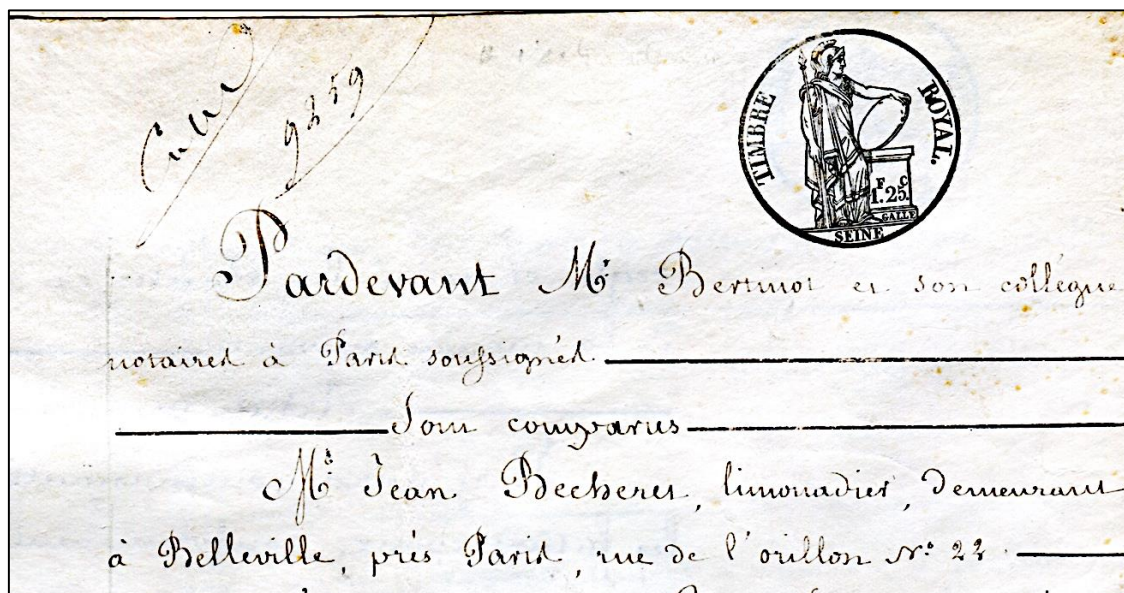 9859
TIMBRE ROYAL.
F C
1.25.
GALLE
SEINE
Pardevant Me Bertinot et son collègue
notaires à Paris soussignés
Sont comparus
Mr Jean Becheret, limonadier, demeurant
à Belleville, près Paris, rue de l'orillon No 22